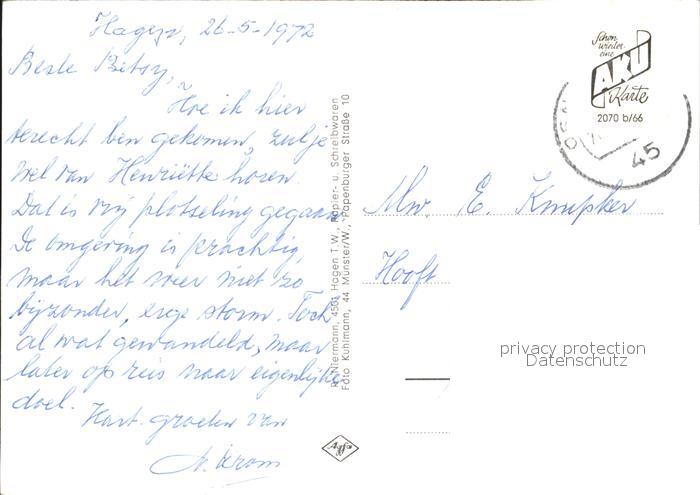 Hagen, 26-5-1972
Beste Betsy,
Hoe ik hier
terecht ben gekomen, zul je
wel van Henriëtte horen.
Dat is vrij plotseling gegaan.
De omgeving is prachtig,
maar het weer niet zo
bijzonder, erge storm. Toch
al wat gewandeld, maar
later op reis naar eigenlijke
doel.
Hart. groeten van
A. Krom
R. Niermann, 4501 Hagen T.W., Papier- u. Schreibwaren
Foto Kuhlmann, 44 Münster/W., Papenburger Straße 10
Agfa
Schon
wieder
eine
AKU
Karte
2070 b/66
45
Mw. E. Knupker
Hooft
privacy protection
Datenschutz